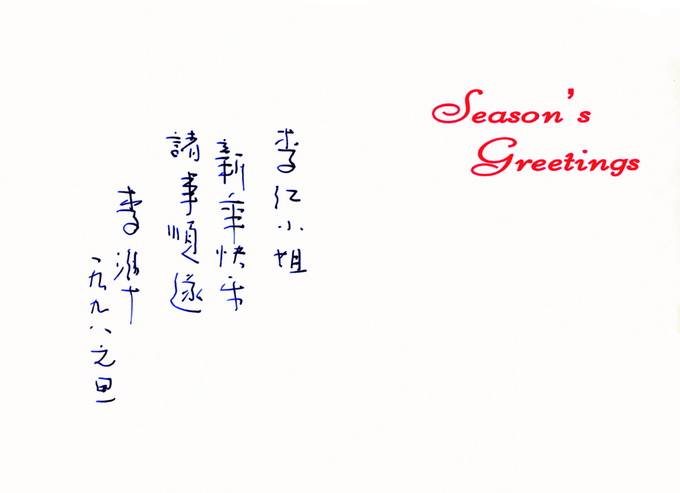 Season's
Greetings
李红小姐
新年快乐
諸事順遂
李準
一九九八元旦